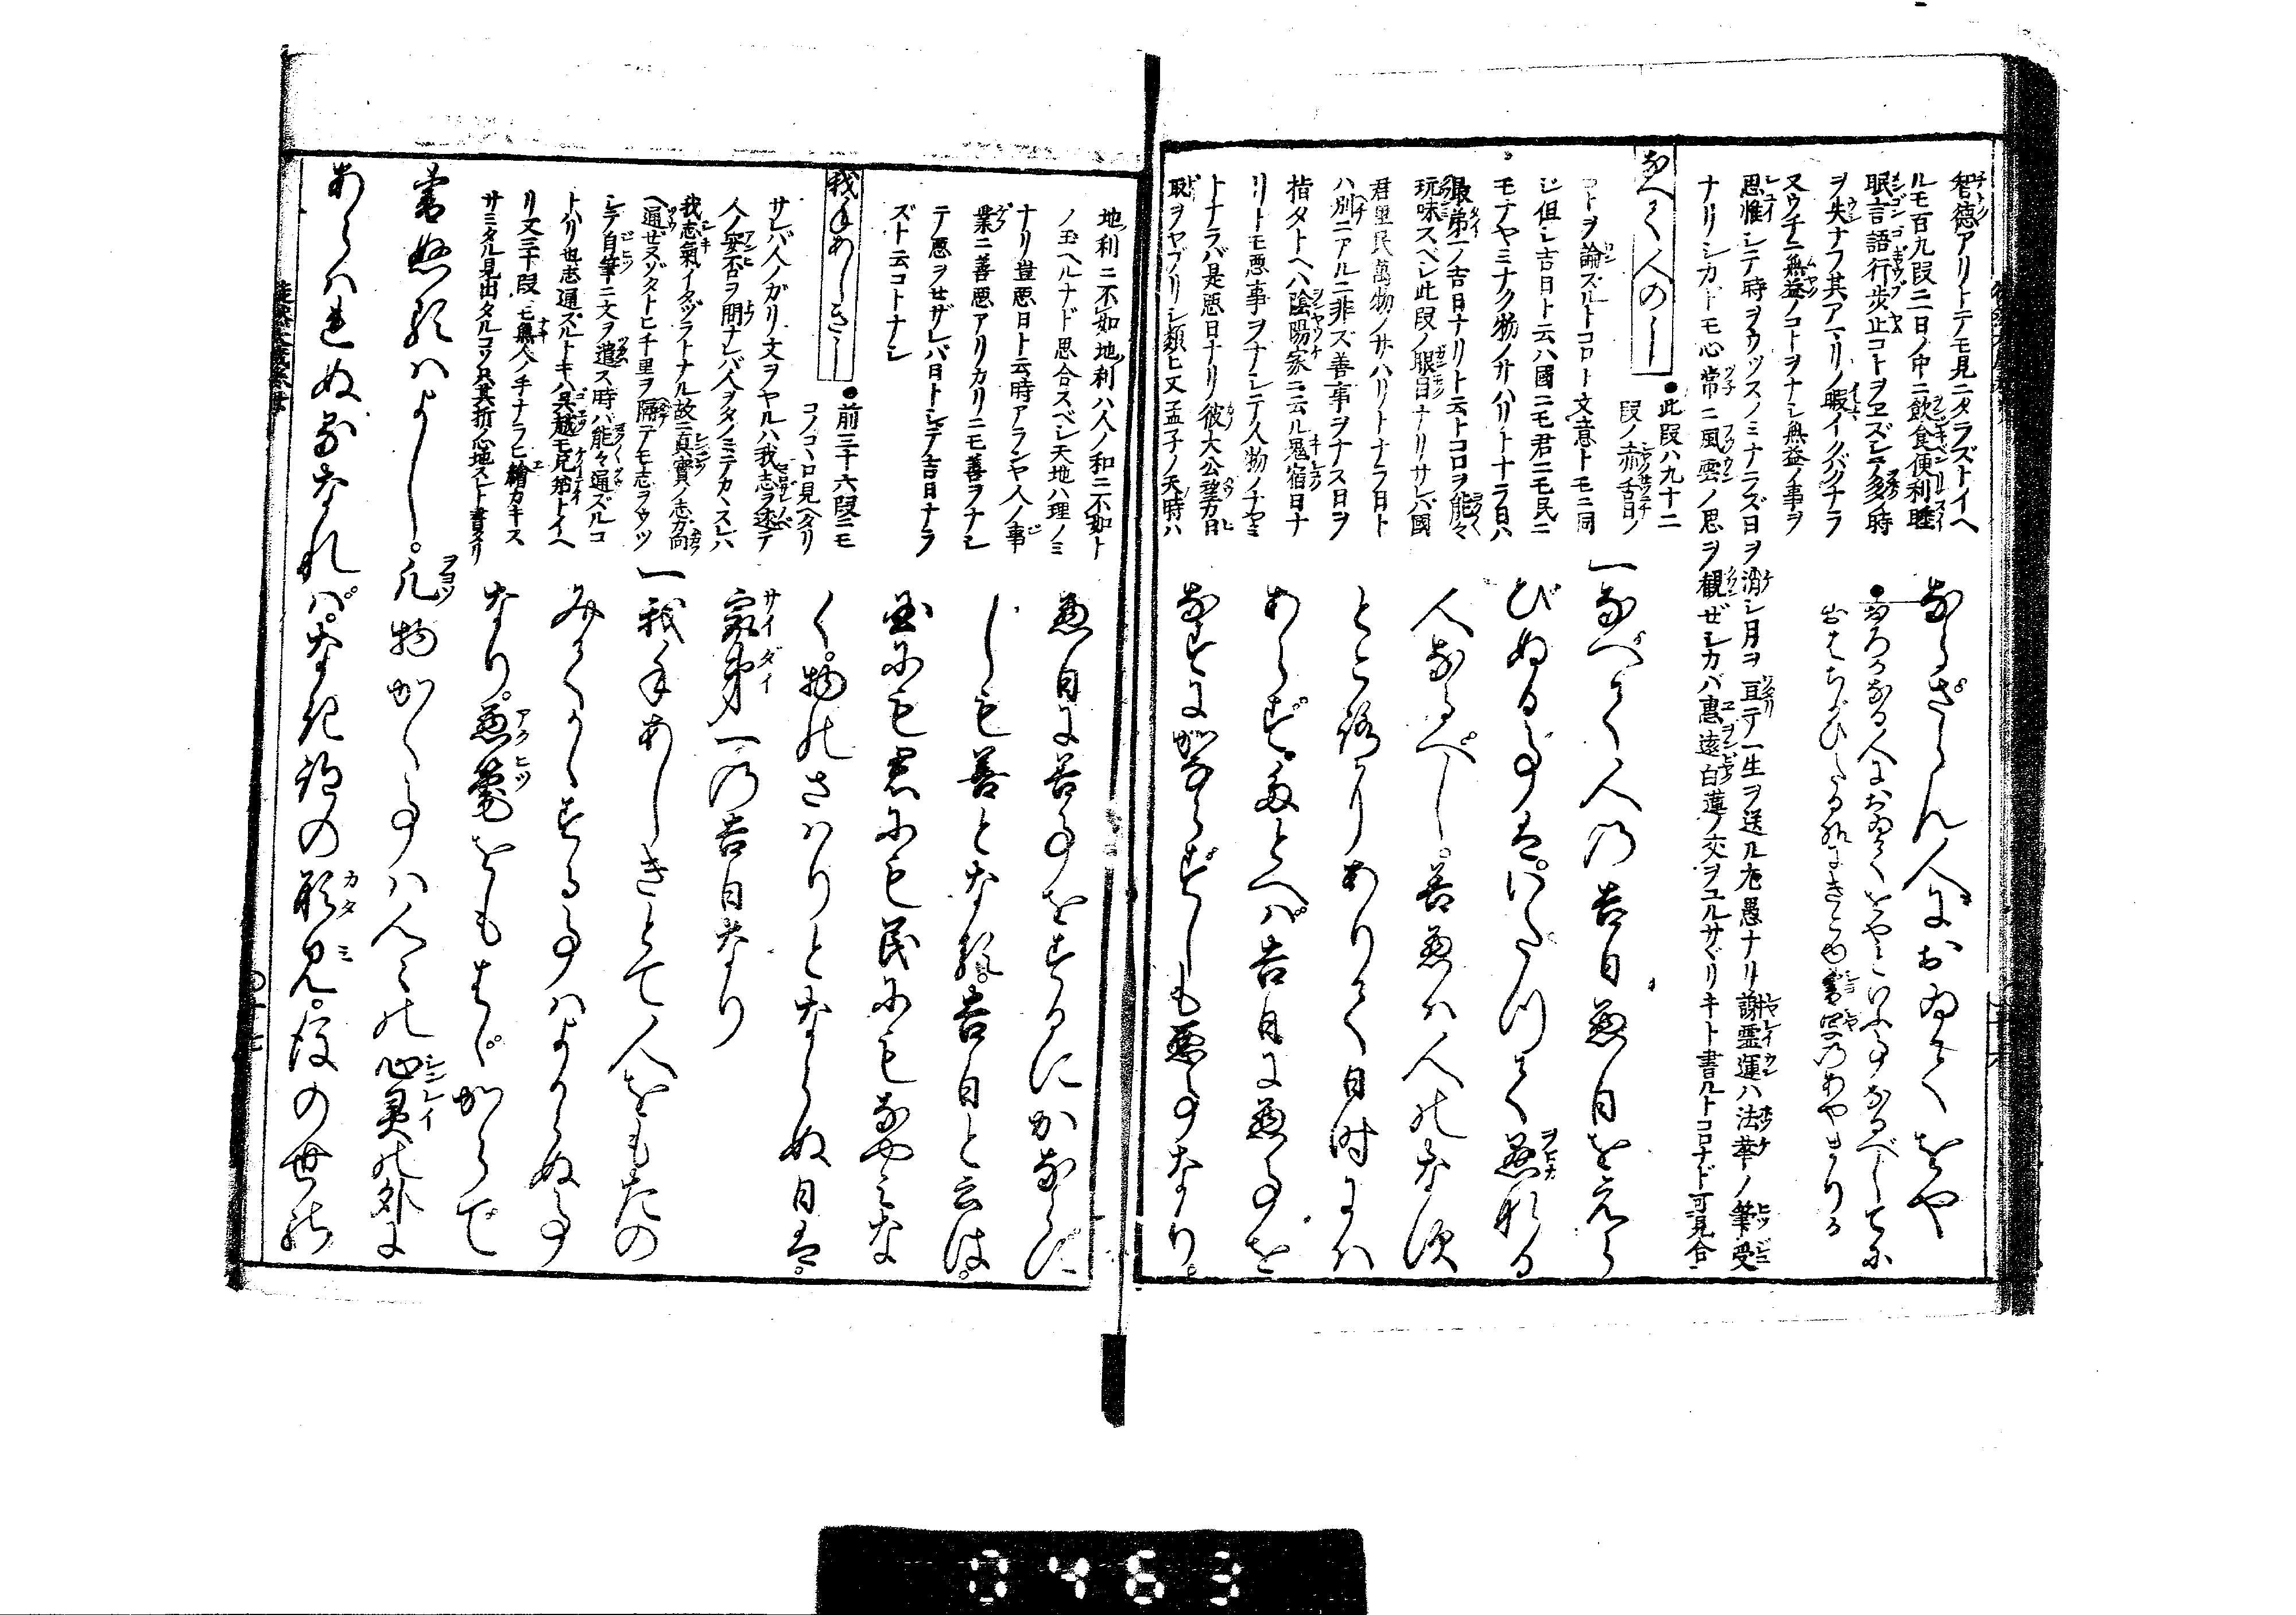 智徳アリトテモ見ニタラズトイヘ
ルモ百九段ニ一日ノ中ニ飲食便利睡
眠言語行歩止コトヲヱズシテ多ノ時
ヲ失ナフ其アマリノ暇イクバクナラ
ヌウチニ無益ノコトヲナシ無益ノ事ヲ
思惟シテ時ヲウツスノミナラズ日ヲ消シ月ヲ亘テ一生ヲ送ル尤愚ナリ謝霊運ハ法華ノ筆受
ナリシカドモ心常ニ風雲ノ思ヲ観ゼシカバ惠遠白蓮ノ交ヲユルサヾリキト書ルトコロナド可見合
ならざらん人におゐてをや
なべて人の
●此段ハ九十二
段ノ赤舌日ノ
コトヲ論ズルトコロト文意トモニ同
ジ但シ吉日ト云ハ國ニモ君ニモ民ニ
モナヤミナク物ノサハリトナラヌ日ハ
最第一ノ吉日ナリト云トコロヲ能々
玩味スベシ此段ノ眼目ナリサレバ國
君里民萬物ノサハリトナラヌ日ト
ハ別ニアルニ非ズ善事ヲナス日ヲ
指タトヘハ陰陽家ニ云ル鬼宿日ナ
リトモ悪事ヲナシテ人物ノナヤミ
トナラバ是悪日ナリ彼大公望方日
取ヲヤブリシ類ヒ又孟子ノ天時ハ
一なべて人の吉日悪日をえら
びぬる事は。いたつて愚かなる
人なるべし。善悪ハ人のなす
ところにありて日時にハ
あらず。たとへば吉日に悪事を
なすにかならずしも悪事なり。
地利ニ不如地利ハ人ノ和ニ不如ト
ノ玉ヘルナド思合スベシ天地ハ理ノミ
ナリ豈悪日ト云時アランヤ人ノ事
業ニ善悪アリカリニモ善ヲナシ
テ悪ヲセザレバ日トシテ吉日ナラ
ズト云コトナシ
悪日に善事をするにかならず
しも善となる。吉日と云は。
國にも君にも民にもなやみな
く。物のさはりとならぬ日は。
最第一の吉日なり
我手あしき
●前三十六段ニモ
コノコヽロ見ヘタリ
サレバ人ノガリ文ヲヤルハ我志ヲ述テ
人ノ安否ヲ問ナレバ人ヲタノミテカヽスレハ
我志氣イタヅラトナル故ニ真實ノ志方向
ヘ通ゼヌゾタトヒ千里ヲ隔テモ志ヲウツ
シテ自筆ニ文ヲ遣ス時ハ能々通ズルコ
トハリ也志通ズルトキハ呉越モ兄弟トイヘ
リ又三十段ニモ無人ノ手ナラヒ繪カキス
サミタル見出タルコソ只其折ノ心地スレト書タリ
一我手あしきとて人をもたの
みてかゝする事ハよからぬ事
なり。悪筆をもはゞからで
書ぬるハよし。凡物かく事ハ人々の心灵の外に
あらハれぬ物なれバ。なき跡の形見。後の世の